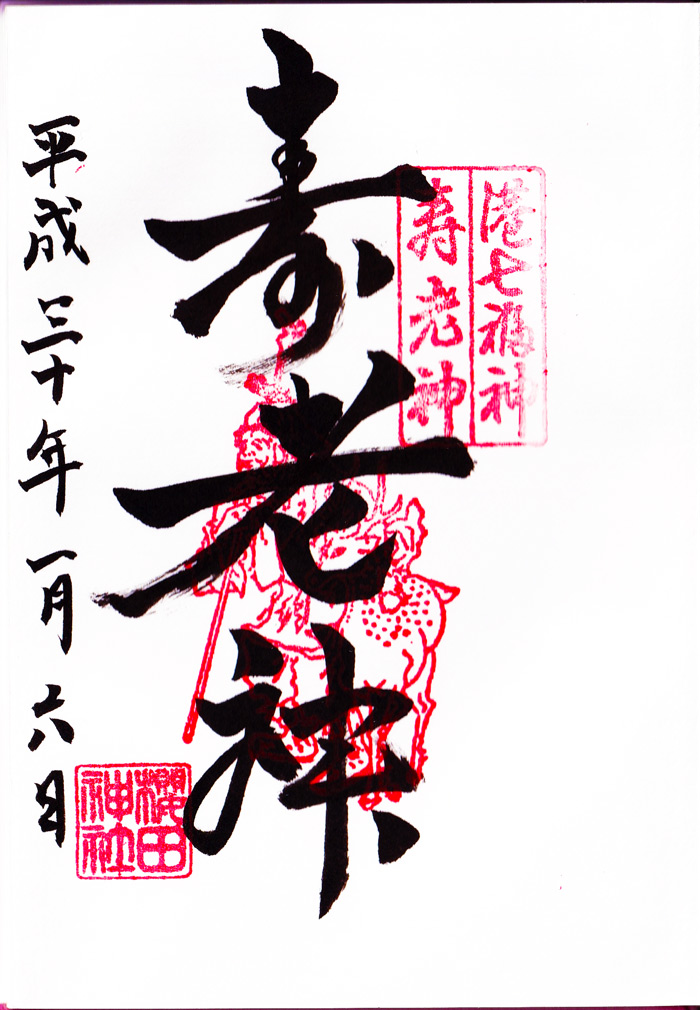 港七福神
寿老神
寿老神
櫻田
神社
平成三十年一月六日